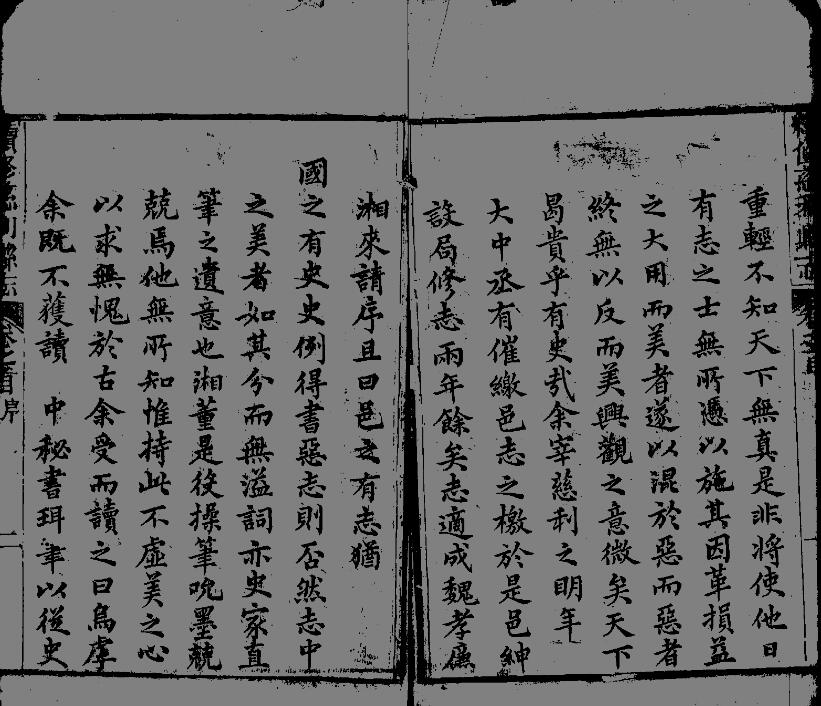 重輕不知天下無真是非將使他日
有志之士無所憑以施其因革損益
之大用而美者遂以混於惡而惡者
終無以反而美興觀之意微矣天下
曷貴乎有史哉余宰慈利之明年
大中丞有催繳邑志之檄於是邑紳
設局修志兩年餘矣志適成魏孝廉
湘來請序且曰邑之有志猶
國之有史史例得書惡志則否然志中
之美者如其分而無溢詞亦史家直
筆之遺意也湘董是役操筆吮墨兢
兢焉他無所知惟持此不虛美之心
以求無愧於古余受而讀之曰烏虖
余既不獲讀 中秘書珥筆以從史